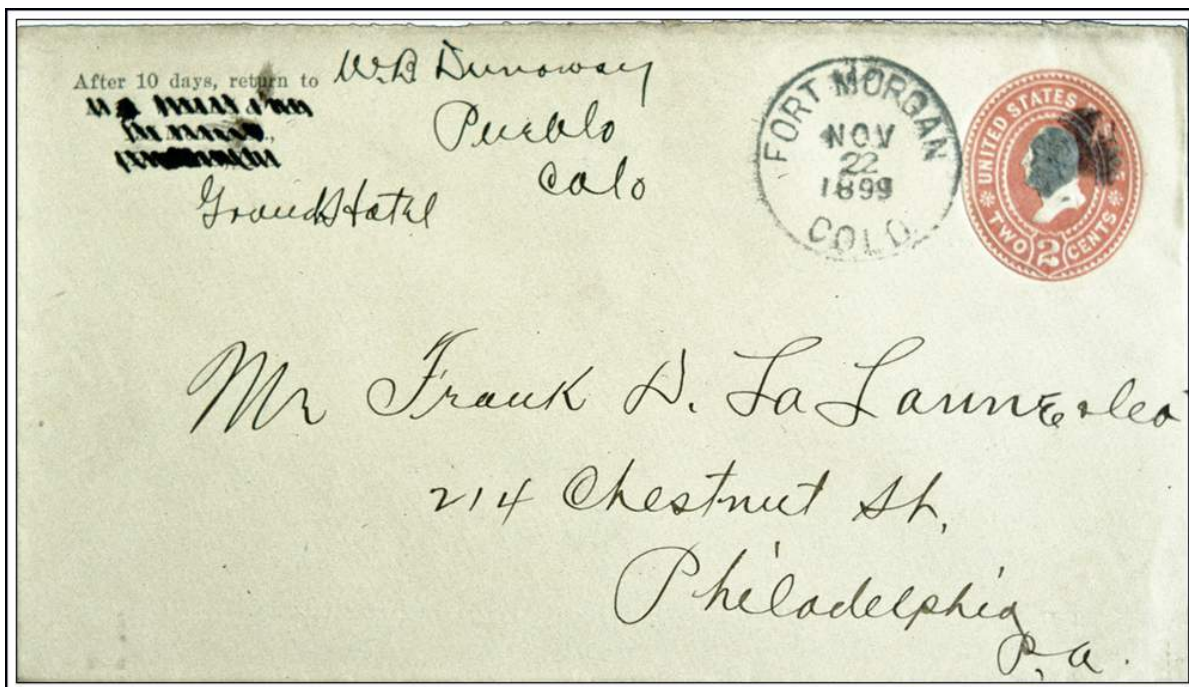 After 10 days, return to W.B Dunoway
Pueblo
Colo
Grand Hotel
FORT MORGAN
NOV
22
1899
COLO.
UNITED STATES
TWO 2 CENTS
Mr Frank D. La Lanne & Co
214 Chestnut St,
Philadelphia
P,a.